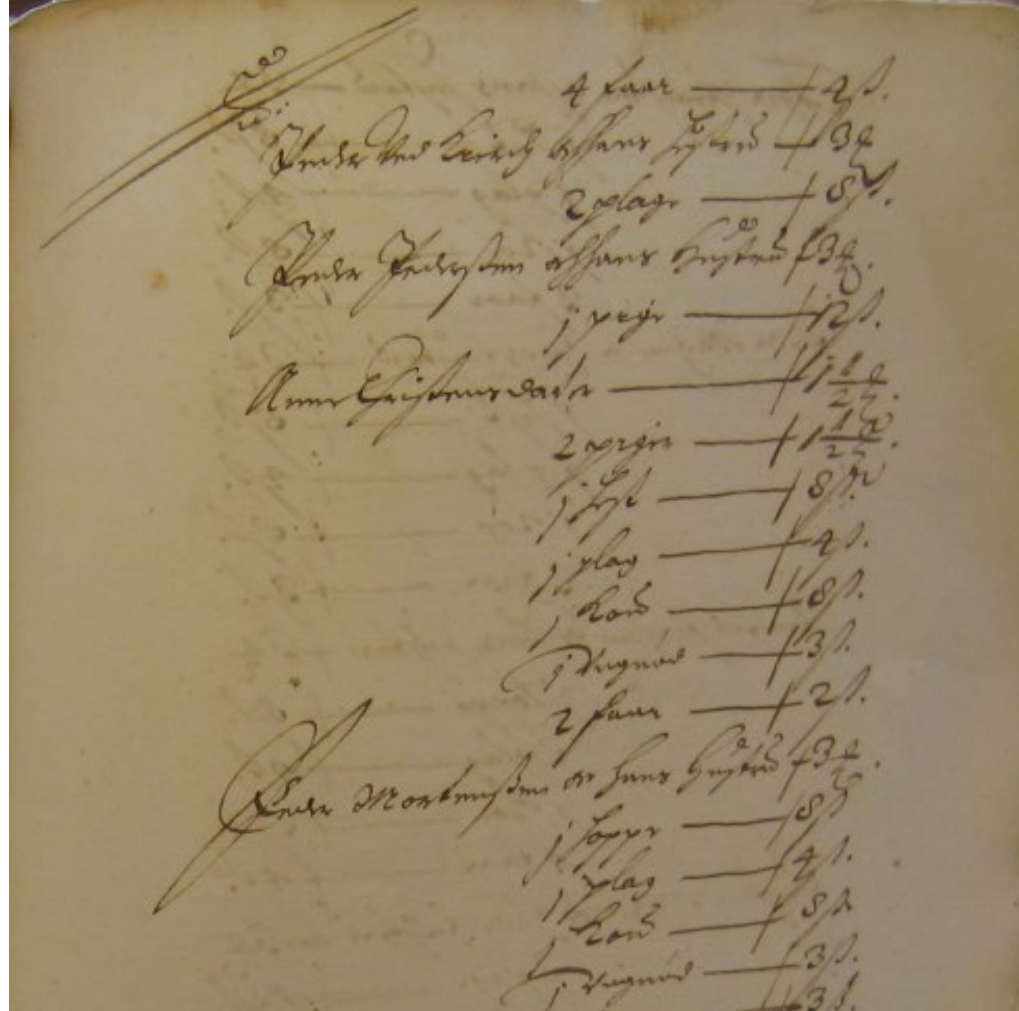 4 faar — 4 ß.
Peder Ved Kirch och hans hustrud — 3
2 plage — 8 ß.
Peder Pederßen och hans hustrud 3
j pige — 12 ß.
Anne Christensdater — 1 1/2
2 piger — 1 1/2
j hest — 8 ß.
j plag — 4 ß.
j Koed — 8 ß.
j Ungnød — 3 ß.
2 faar — 2 ß.
Peder Mortenßen oc hans hustrud 3
j hoppe — 8 ß
j plag — 4 ß.
j Koed — 8 ß
j Ungnød — 3 ß.
3 ß.